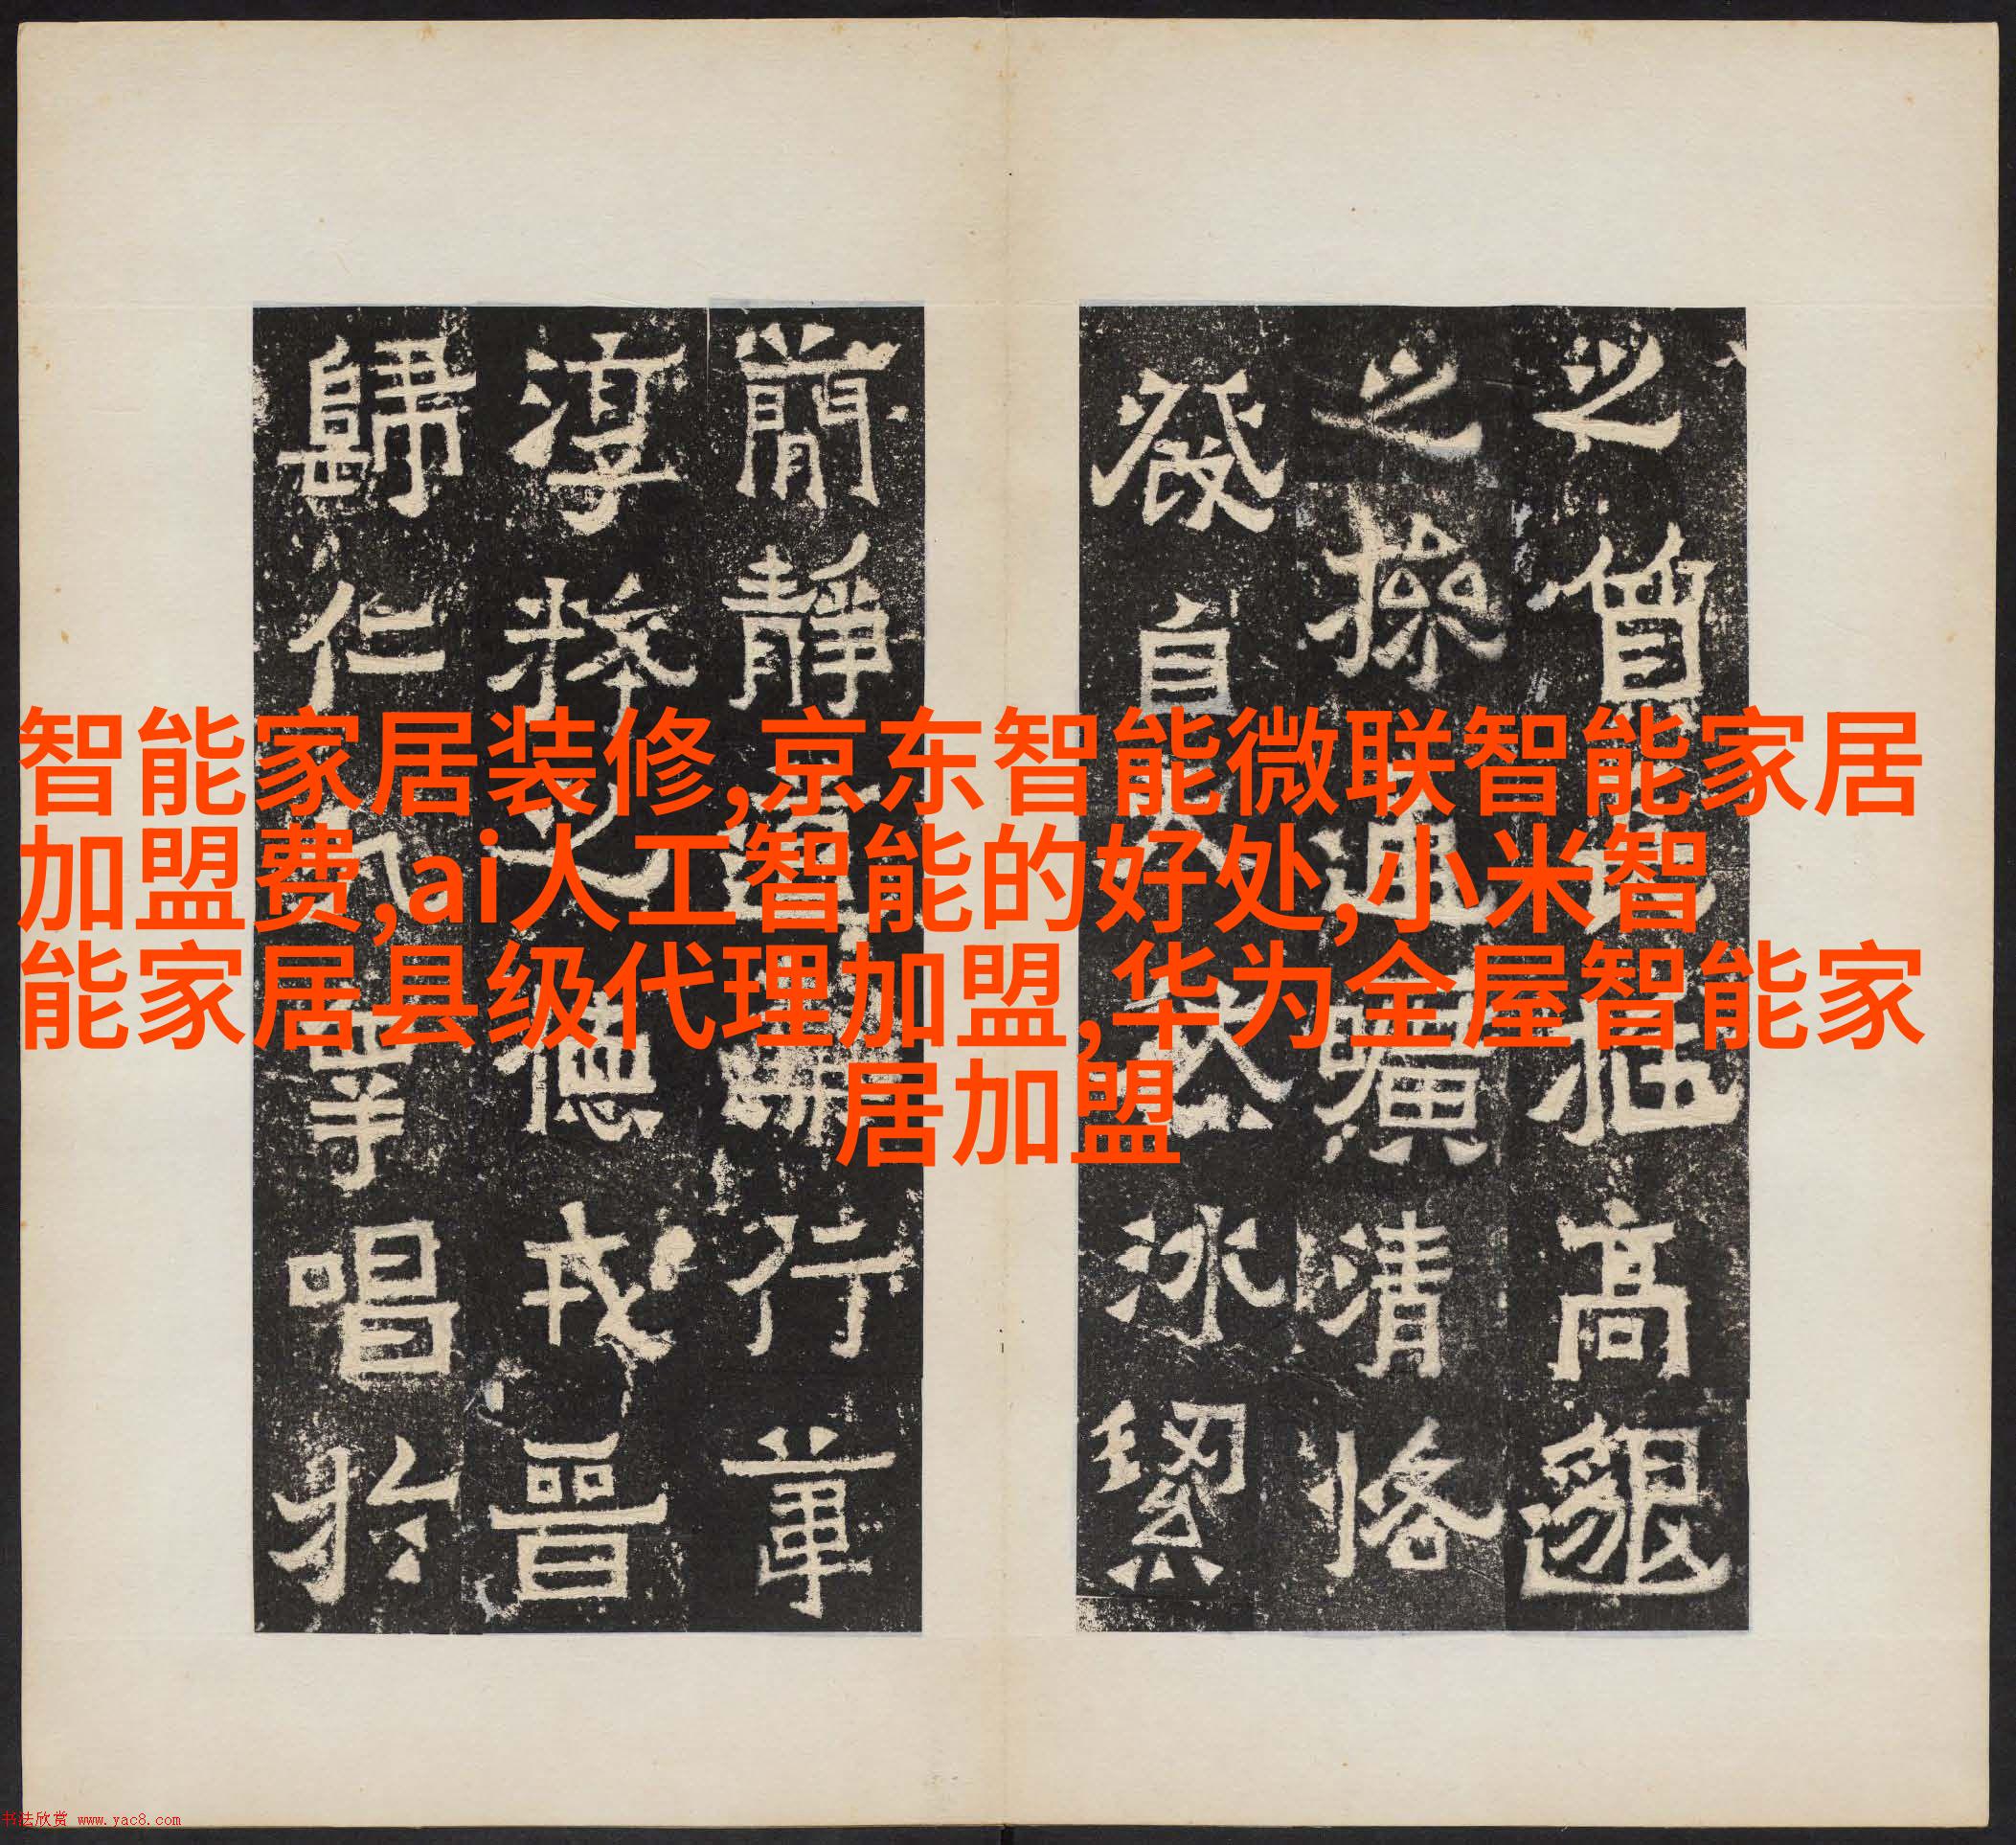 之質，□□高邈
之操，通曠清恪
發自天然，冰絜
簡靜，□□行葦
淳□之德，戎晉
歸仁，九皋唱於
智能家居装修,京东智能微联智能家居
加盟费,ai人工智能的好处,小米智
能家居县级代理加盟,华为全屋智能家
居加盟
书法欣赏 www.yac8.com